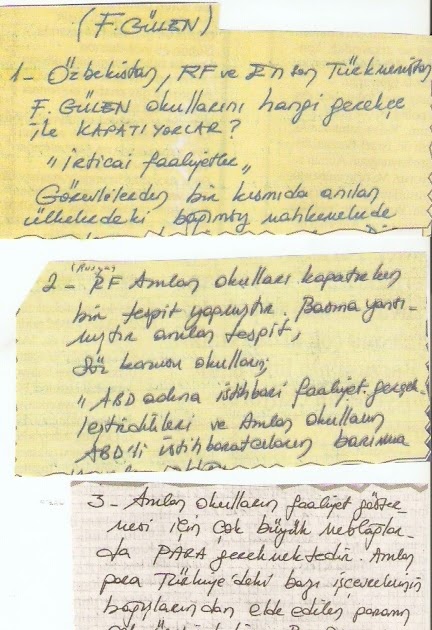 (F. GÜLEN)
1- Özbekistan, RF ve En son Türkmenistan
F. GÜLEN okullarını hangi gerekçe
ile KAPATIYORLAR?
"irticai faaliyetler"
Görevlilerden bir kısmıda anılan
ülkelerdeki bağımsız mahkemelerde
2- (Rusya) RF Anılan okulları kapatırken
bir tespit yapmıştır. Basına yansı-
mıştır anılan tespit,
Söz konusu okulların;
"ABD adına istihbari faaliyet gerçek-
leştirdikleri ve Anılan okulların
ABD'li istihbaratcıların barınma
3- Anılan okulların faaliyet göster-
mesi için çok büyük meblağlar-
da PARA gerekmektedir. Anılan
para Türkiye'deki bazı işverenlerin
bağışlarından elde edilen paranın